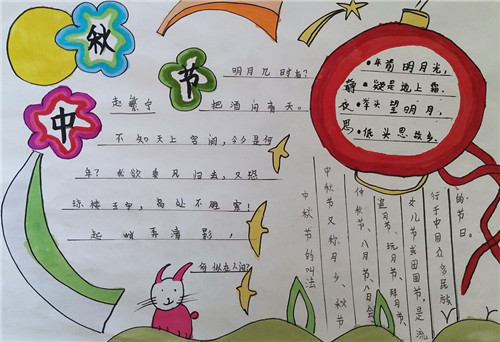 中
秋
节
明月几时有?
把酒问青天。
不知天上宫阙,今夕是何
年?我欲乘风归去,又恐
琼楼玉宇,高处不胜寒!
起舞弄清影,
何似在人间?
静夜思
·床前明月光,
·疑是地上霜。
·举头望明月,
·低头思故乡。
中秋节的叫法
中秋节又称月夕、秋节
仲秋节、八月节、八月会、
追月节、玩月节、拜月节、
女儿节或团圆节,是流
行于中国众多民族
的节日。